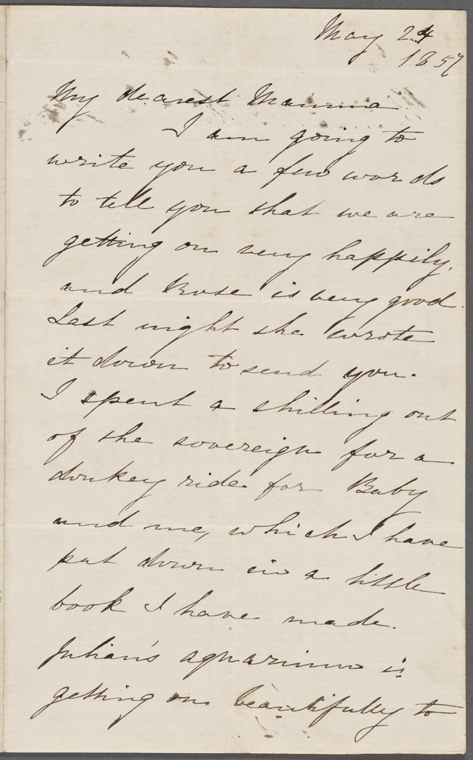 May 24
1857
My dearest Mamma
I am going to
write you a few words
to tell you that we are
getting on very happily,
and Rose is very good.
Last night she wrote
it down to send you.
I spent a shilling out
of the sovereign for a
donkey ride for Baby
and me, which I have
put down in a little
book I have made.
Julian's aquarium is
getting on beautifully to